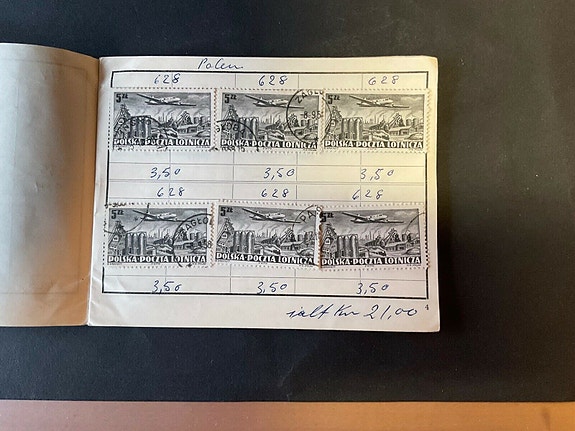 Polen
628 628 628
5 ZŁ 5 ZŁ 5 ZŁ
POLSKA·POCZTA LOTNICZA POLSKA·POCZTA LOTNICZA POLSKA·POCZTA LOTNICZA
3,50 3,50 3,50
628 628 628
5 ZŁ 5 ZŁ 5 ZŁ
POLSKA·POCZTA LOTNICZA POLSKA·POCZTA LOTNICZA POLSKA·POCZTA LOTNICZA
3,50 3,50 3,50
ialt Kr 21,00
4